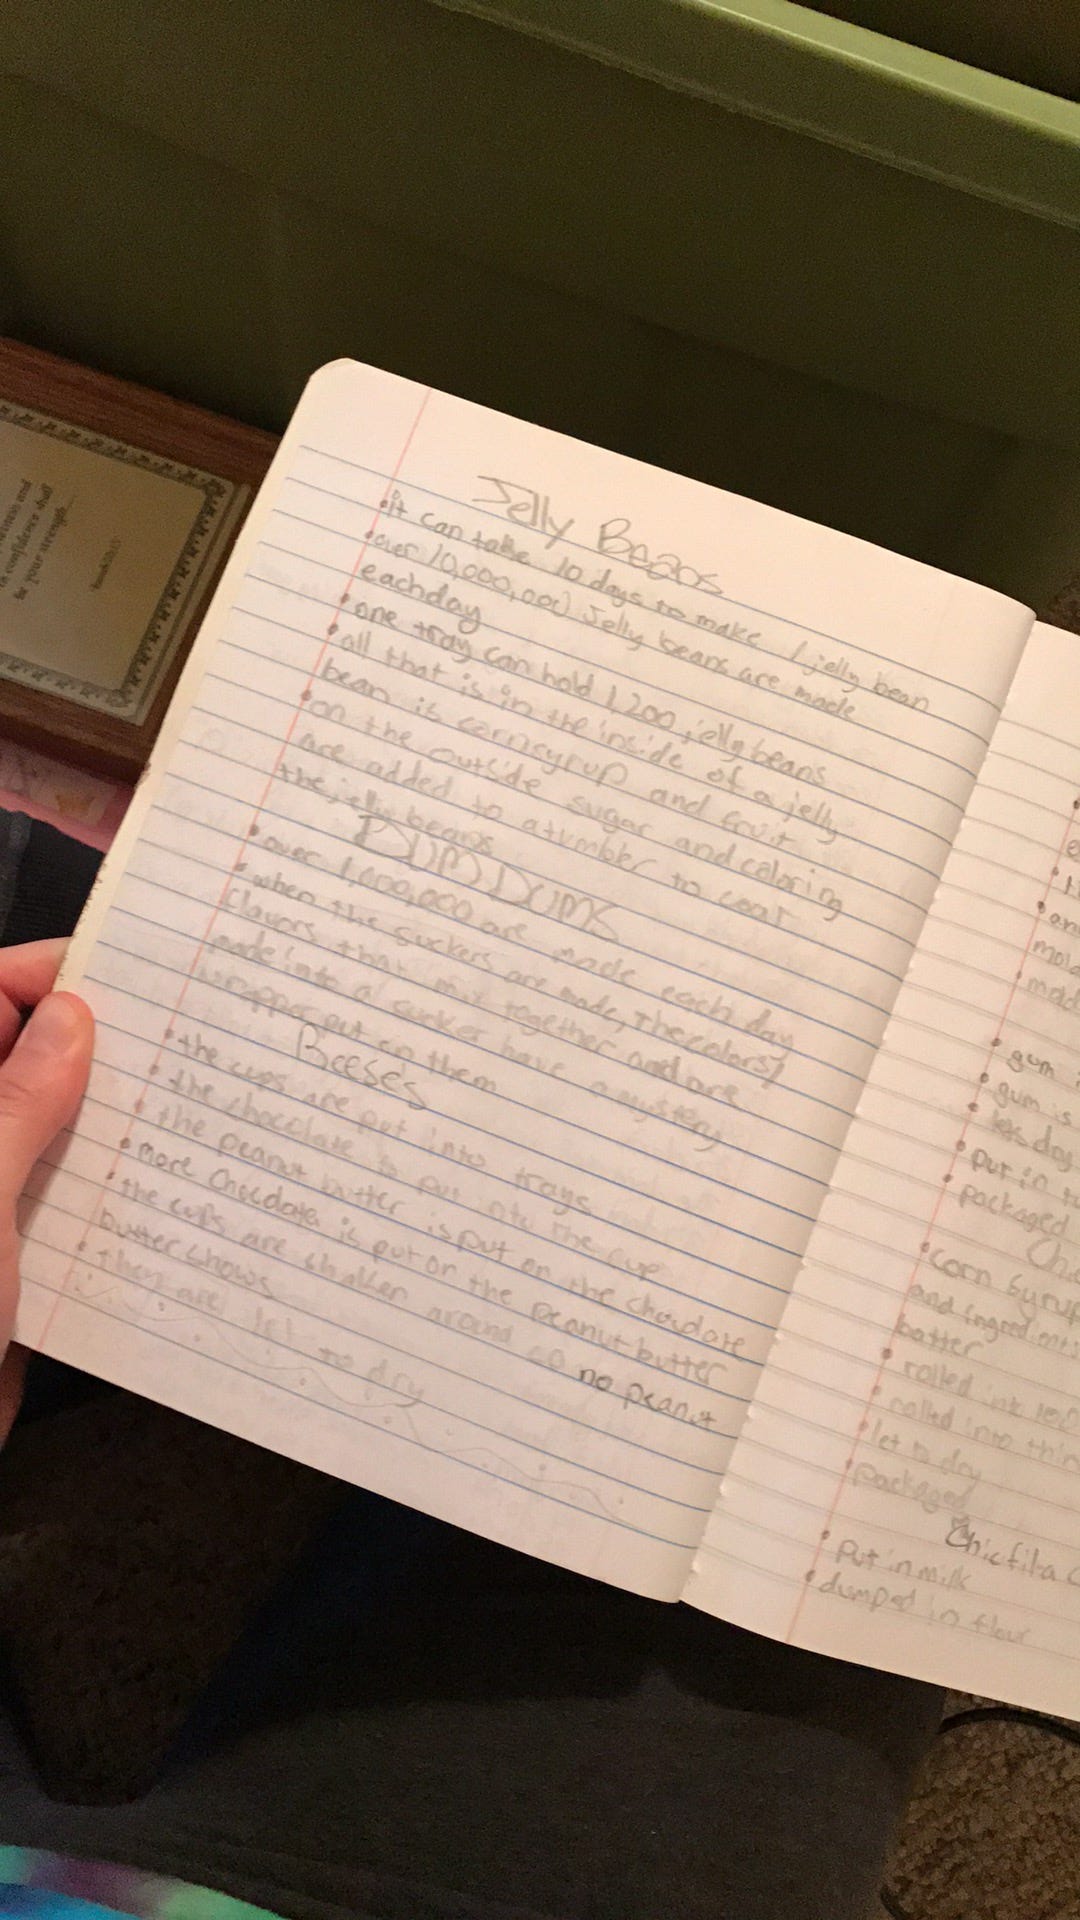 Jelly Beans
•it can take 10 days to make 1 jelly bean
•over 10,000,000 Jelly beans are made
eachday
•one tray can hold 1,200 jelly beans
•all that is in the inside of a jelly
bean is cornsyrup and fruit
•on the outside sugar and coloring
are added to a tumbler to coat
the jelly beans
DUM DUMS
•over 1,000,000 are made each day
•when the suckers are made, The colors/
flavors that mix together and are
made into a sucker have a mystery
wrapper put on them
Reese's
•the cups are put into trays
•the chocolate is put into the cup
•the peanut butter is put on the chocolate
•more Chocolate is put on the peanut butter
•the cups are shaken around so no peanut
butter shows
•they are let to dry
•an
mold
gum
•gum is
•lets dry
•put in
•packaged
•corn syrup
and ingredients
batter
•rolled
•rolled into thin
•let to dry
•packaged
Chicfila
•Put in milk
•dumped in flour
and
confidence shall
be your strength